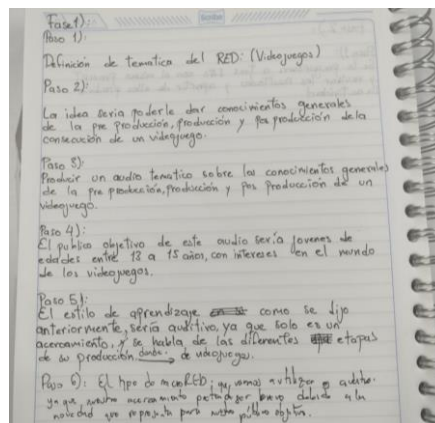 Fase 1):
Paso 1):
Definición de tematica del RED: (Videojuegos)
Paso 2):
La idea seria poderle dar conocimientos generales
de la pre producción, producción y pos producción de la
consecución de un videojuego.
Paso 3):
Producir un audio tematico sobre los conocimientos generales
de la pre producción, producción y pos producción de un
videojuego.
Paso 4):
El publico objetivo de este audio sería jovenes de
edades entre 13 a 15 años, con intereses en el mundo
de los videojuegos.
Paso 5):
El estilo de aprendizaje como se dijo
anteriormente, sería auditivo, ya que solo es un
acercamiento, y se habla de las diferentes etapas
de su producción de videojuegos.
Paso 6): El tipo de RED, que vamos a utilizar es auditivo.
ya que, nuestro acercamiento ser breve debido a la
novedad que representa para nuestro público objetivo.